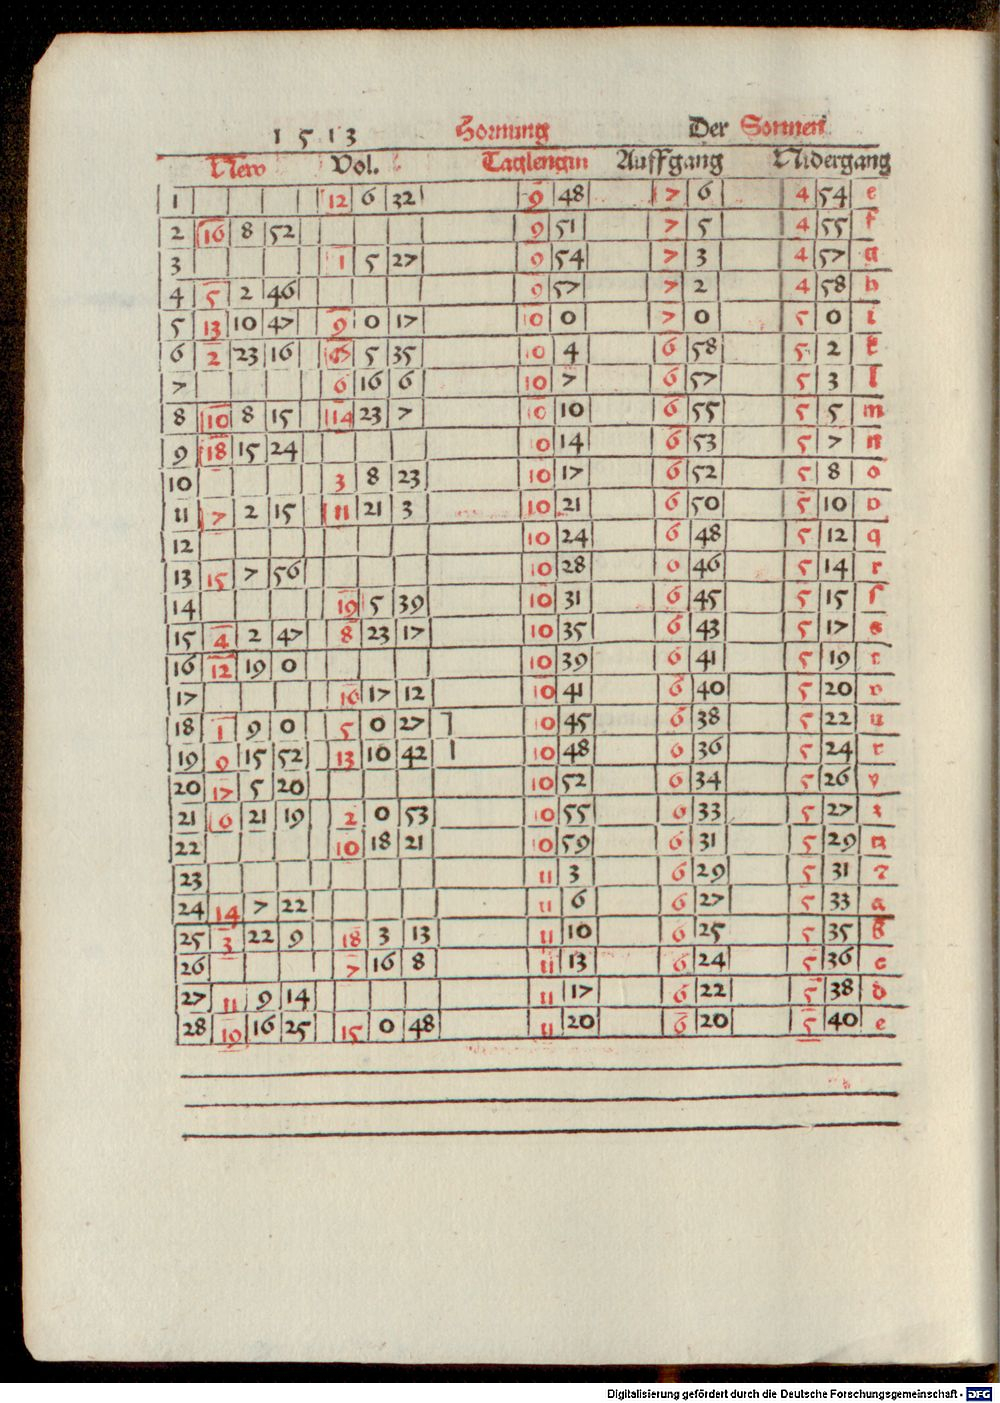 1513 Hornung Der Sonnen
New Vol. Taglengin Auffgang Nidergang
1 12 6 32 9 48 7 6 4 54 e
2 16 8 52 9 51 7 5 4 55 f
3 1 5 27 9 54 7 3 4 57 g
4 5 2 46 9 57 7 2 4 58 h
5 13 10 47 9 0 17 10 0 7 0 5 0 i
6 2 23 16 5 35 10 4 6 58 5 2 k
7 6 16 6 10 7 6 57 5 3 l
8 10 8 15 14 23 7 10 10 6 55 5 5 m
9 18 15 24 10 14 6 53 5 7 n
10 3 8 23 10 17 6 52 5 8 o
11 7 2 15 11 21 3 10 21 6 50 5 10
12 10 24 6 48 5 12 q
13 15 7 56 10 28 6 46 5 14 r
14 19 5 39 10 31 6 45 5 15 ſ
15 4 2 47 8 23 17 10 35 6 43 5 17 s
16 12 19 0 10 39 6 41 5 19 t
17 16 17 12 10 41 6 40 5 20 v
18 1 9 0 5 0 27 10 45 6 38 5 22 u
19 9 15 52 13 10 42 10 48 6 36 5 24
20 17 5 20 10 52 6 34 5 26 y
21 6 21 19 2 0 53 10 55 6 33 5 27 z
22 10 18 21 10 59 6 31 5 29
23 11 3 6 29 5 31
24 14 7 22 11 6 6 27 5 33 a
25 3 22 9 18 3 13 11 10 6 25 5 35 b
26 7 16 8 11 13 6 24 5 36 c
27 11 9 14 11 17 6 22 5 38 d
28 19 16 25 15 0 48 11 20 6 20 5 40 e
Digitalisierung gefördert durch die Deutsche Forschungsgemeinschaft - DFG